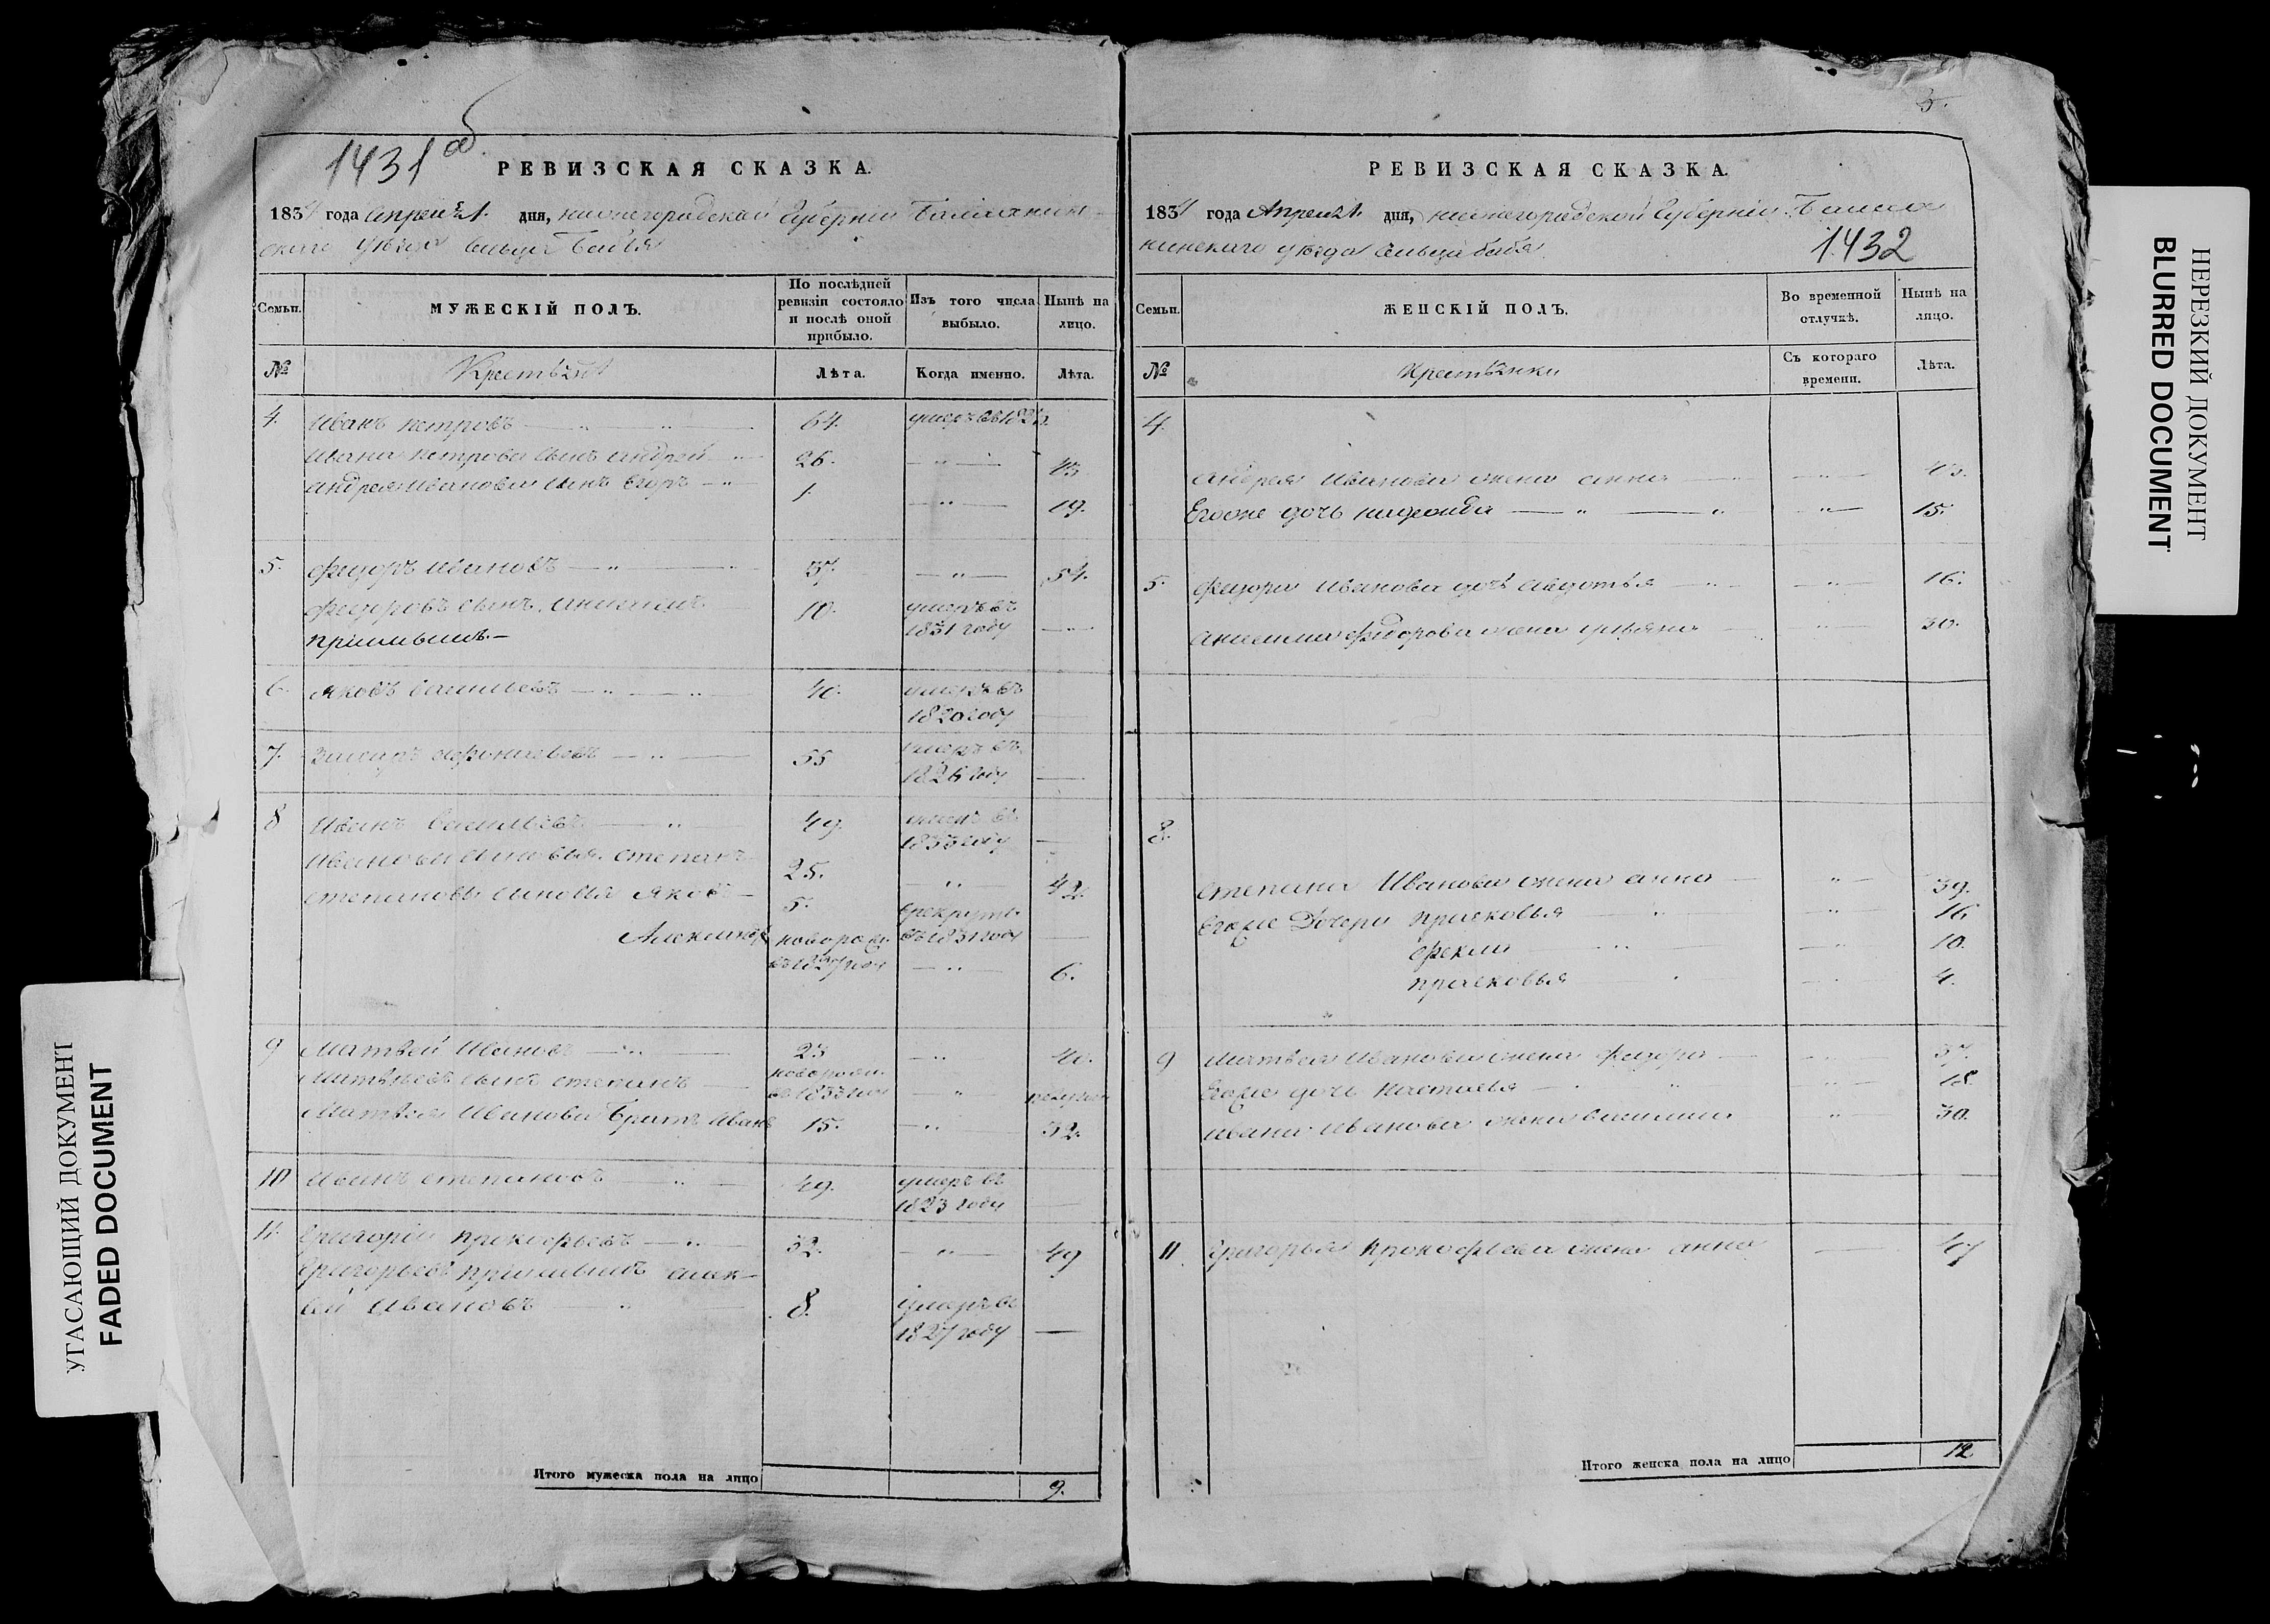 1431 об.
РЕВИЗСКАЯ СКАЗКА.
1834 года Апреля 21. дня, Нижегородской Губерніи Балахнин-
скаго уѣзда сельца Бабья
Семьи.
МУЖЕСКІЙ ПОЛЪ.
По послѣдней ревизіи состояло и послѣ оной прибыло.
Изъ того числа выбыло.
Нынѣ на лицо.
№
Крестьяне
Лѣта.
Когда именно.
Лѣта.
4. Иванъ петровъ — „ — „ — 64. умеръ въ
Ивана петрова сынъ андрей — „ 26. — „ — 43
андрея Иванова сынъ Егоръ — „ 1. — „ — 19.
5. Федоръ ивановъ — „ — „ 37. — „ — 54.
Федоровъ сынъ 10. умеръ въ
пріимышъ.— 1831 году — „ —
6. яковъ васильевъ — „ — „ 40. умеръ въ
1820 году —
7. афонасьевъ — „ — 55 умеръ въ
1826 году —
8 Иванъ васильевъ — „ 49. умеръ въ
1833 году —
Ивановы сыновья степанъ 25. — „ 42.
степановы сыновья яковъ — 5. в рекруты
Александръ новорожд. въ 1831 году —
— „ — 6.
9 Матвей Ивановъ — „ — 23 — „ 40.
Матвѣевъ сынъ степанъ — новорожд.
въ 1833 году — „ —
Матвѣя Иванова братъ Иванъ 15. — „ 32.
10 Иванъ степановъ — „ — 49. умеръ въ
1823 году —
11. Григорій прокофьевъ — „ — 32. — „ — 49
Григорьевъ пріимышъ алек-
сѣй ивановъ — „ — 8. умеръ въ
1827 году —
Итого мужеска пола на лицо 9.
3.
РЕВИЗСКАЯ СКАЗКА.
1834 года Апреля 21. дня, Нижегородской Губерніи Балах
нинскаго уѣзда сельца бабья
1432
Семьи.
ЖЕНСКІЙ ПОЛЪ.
Во временной отлучкѣ.
Нынѣ на лицо.
№
Крестьянки
Съ котораго времени.
Лѣта.
4.
андрея Иванова жена анна — „ — 43.
Егоже дочь — „ — „ — „ — 15.
5. федора Иванова дочь авдотья — „ — „ — 16.
федорова жена ульяна — „ — 30.
8.
степана Иванова жена анна — „ — 39.
Егоже Дочери прасковья „ — „ 16
фекла — „ — „ 10.
прасковья 4.
9 Матвея Иванова жена федора — 37.
Егоже дочь настасья — „ — 18.
ивана Иванова жена василиса „ — 30.
11. Григорья прокофьева жена анна — 47
Итого женска пола на лицо 12
УГАСАЮЩИЙ ДОКУМЕНТ
FADED DOCUMENT
НЕРЕЗКИЙ ДОКУМЕНТ
BLURRED DOCUMENT